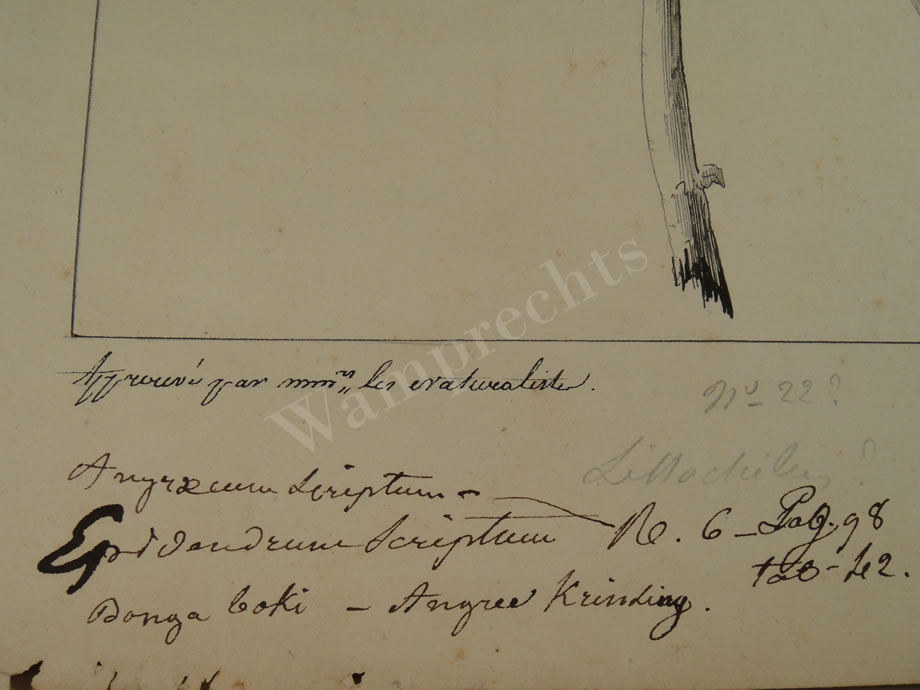 Approuvé par mmrs les naturalistes.
No 22?
Lissochilus?
Angræcum Scriptum -
Epidendrum Scriptum R. 6 - Pag. 98
tab - 42.
Bonga boki - Angree Krinding.
Wamprechts